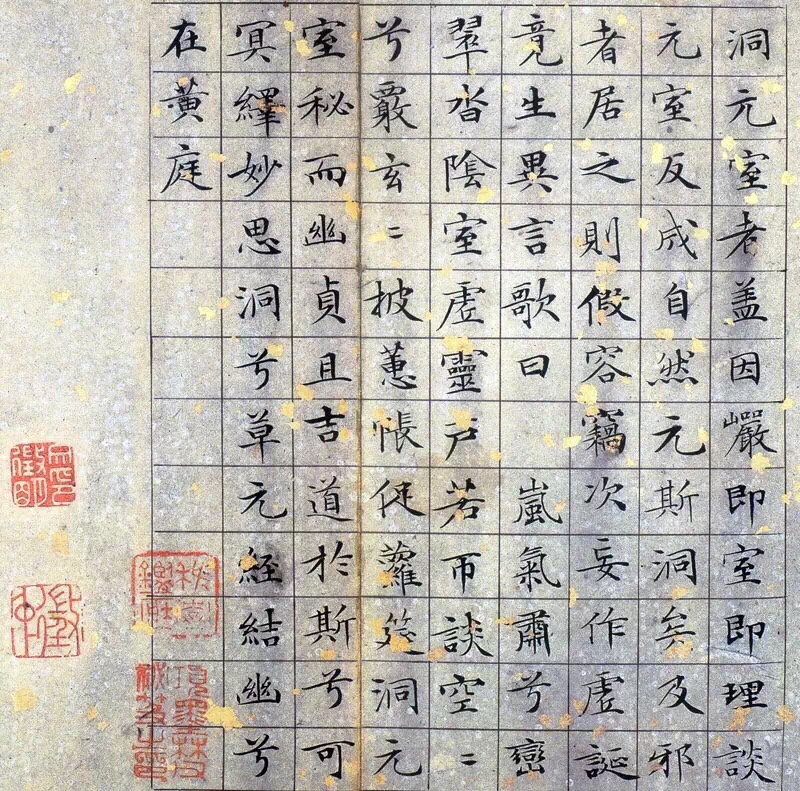 洞元室者盖因巖即室即理談
元室反成自然元斯洞矣及邪
者居之則假容竊次妄作虛誕
竟生異言歌曰 嵐氣肅兮巒
翠沓陰室虛靈户若帀談空〻
兮覈玄〻披蕙帳促蘿筵洞元
室秘而幽貞且吉道於斯兮可
冥繹妙思洞兮草元經結幽兮
在黃庭
項墨林父秘笈之印